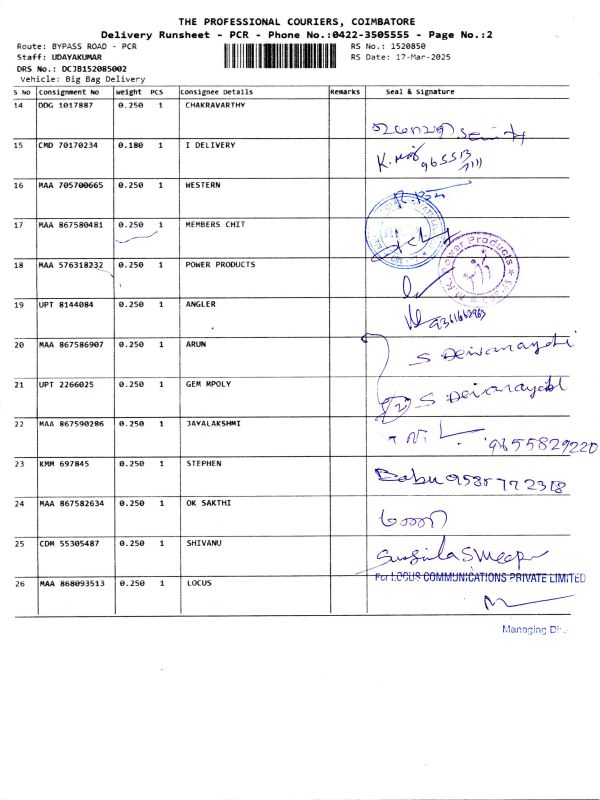 THE PROFESSIONAL COURIERS, COIMBATORE
Delivery Runsheet - PCR - Phone No.:0422-3505555 - Page No.:2
Route: BYPASS ROAD - PCR RS No.: 1520850
Staff: UDAYAKUMAR RS Date: 17-Mar-2025
DRS No.: DCJB152085002
Vehicle: Big Bag Delivery
S No Consignment No Weight PCS Consignee Details Remarks Seal & Signature
14 DDG 1017887 0.250 1 CHAKRAVARTHY
15 CMD 70170234 0.180 1 I DELIVERY
16 MAA 705700665 0.250 1 WESTERN
17 MAA 867580481 0.250 1 MEMBERS CHIT
18 MAA 576318232 0.250 1 POWER PRODUCTS
Power Products
19 UPT 8144084 0.250 1 ANGLER
20 MAA 867586907 0.250 1 ARUN
21 UPT 2266025 0.250 1 GEM MPOLY
22 MAA 867590286 0.250 1 JAYALAKSHMI
9655829220
23 KMM 697845 0.250 1 STEPHEN
Babu
24 MAA 867582634 0.250 1 OK SAKTHI
25 CDM 55305487 0.250 1 SHIVANU
26 MAA 868093513 0.250 1 LOCUS
For LOCUS COMMUNICATIONS PRIVATE LIMITED
Managing